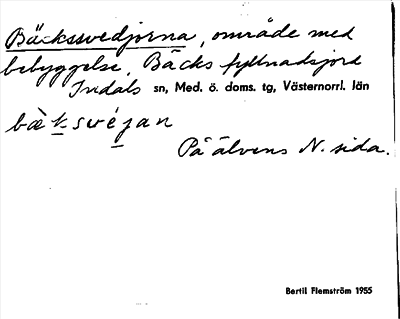 Bäckssvedjorna, område med
bebyggelse, Bäcks fyllnadsjord
Indals sn, Med. ö. doms. tg, Västernorrl. län
bæ̀kswéjan
På älvens N. sida.
Bertil Flemström 1955